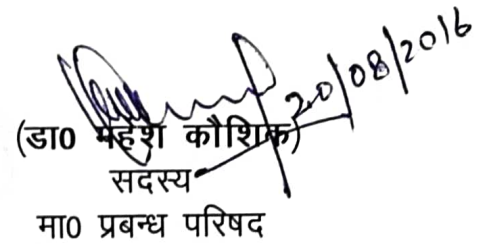 20/08/2016
(डा0 महेश कौशिक)
सदस्य
मा0 प्रबन्ध परिषद